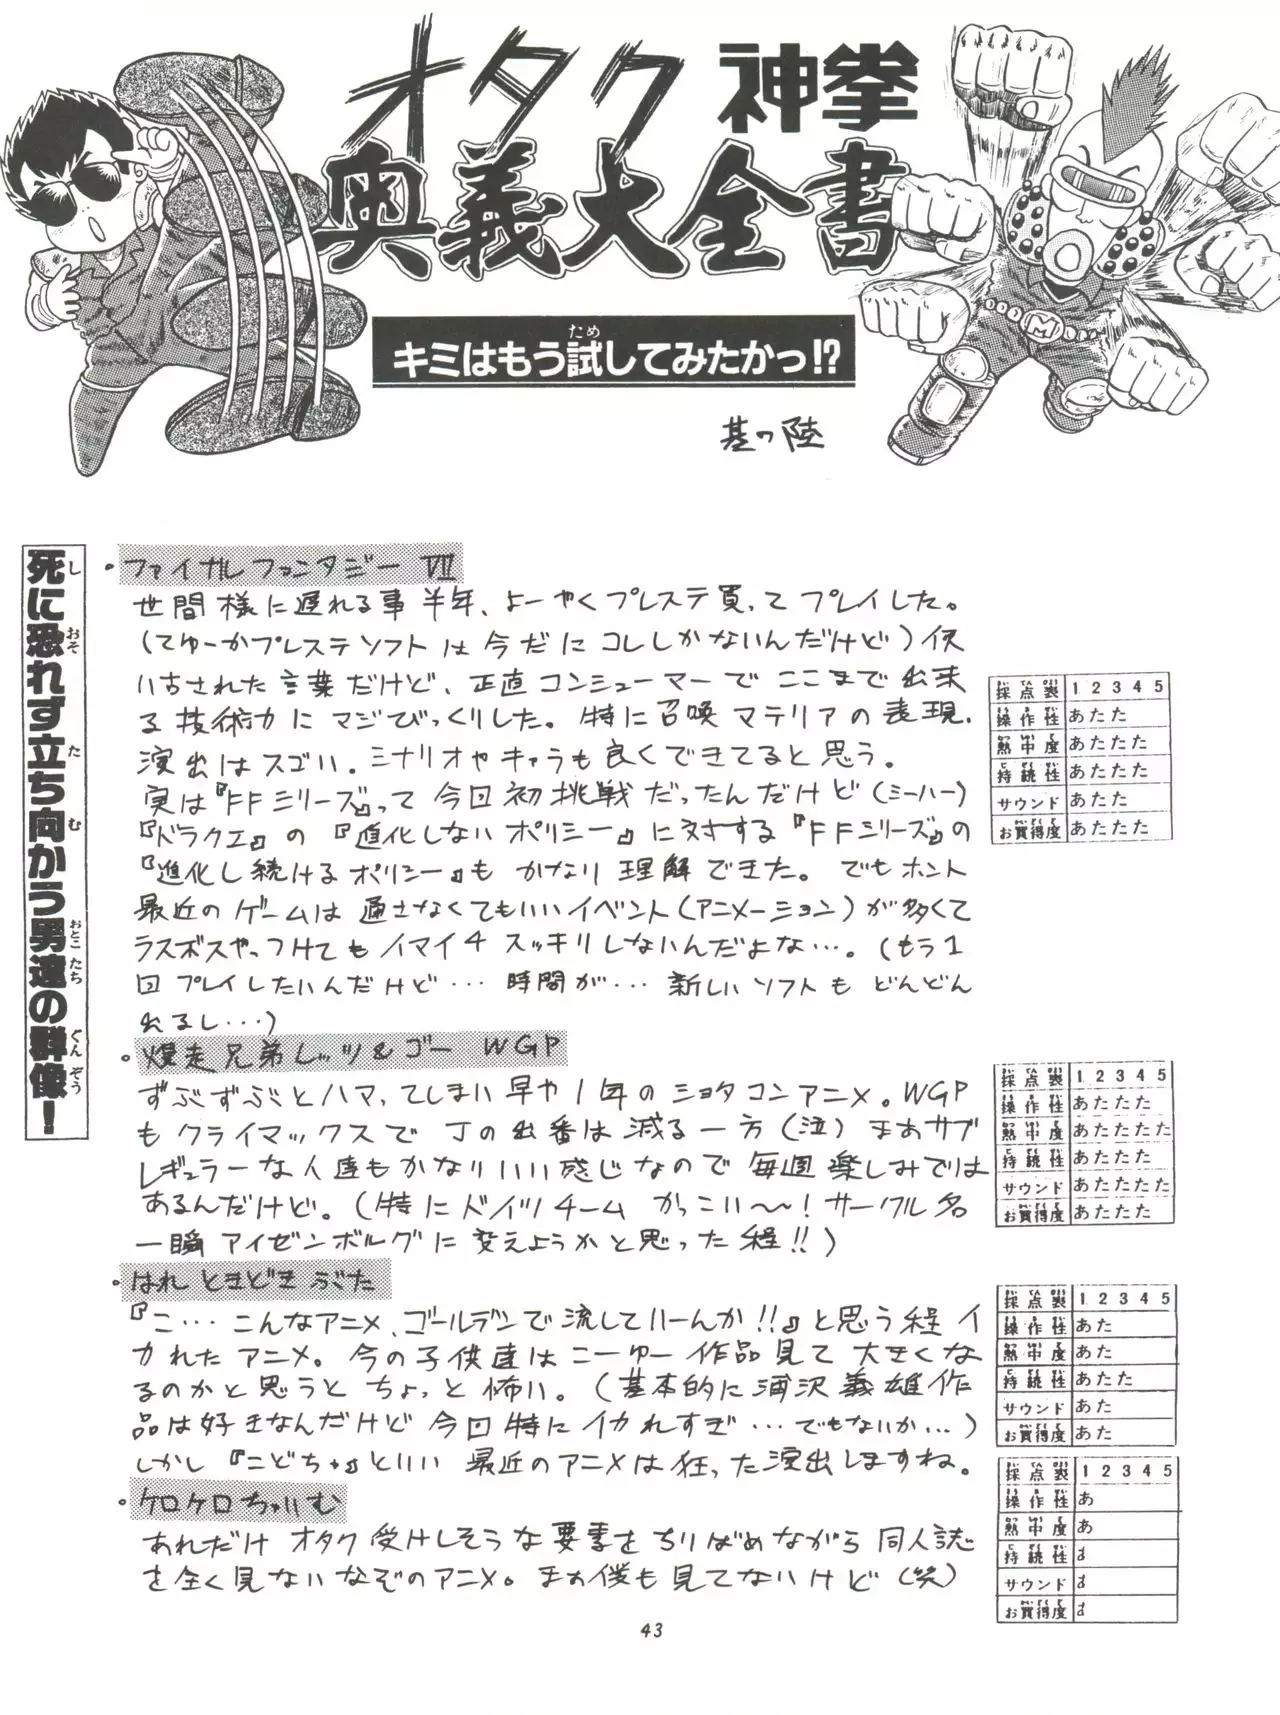 オタク神拳
奥義大全書
キミはもう試してみたかっ!?
ため
其の陸
死に恐れず立ち向かう男達の群像!
し おそ た む おとこ たち ぐん ぞう
・ファイナルファンタジーⅦ
世間様に遅れる事半年、よーやくプレステ買ってプレイした。
(てゆーかプレステソフトは今だにコレしかないんだけど)使
い古された言葉だけど、正直コンシューマーでここまで出来
る技術力にマジびっくりした。特に召喚マテリアの表現、
演出はスゴい。ミナリオやキャラも良くできてると思う。
実は『FFシリーズ』って今回初挑戦だったんだけど(ミーハー)
『ドラクエ』の『進化しないポリシー』に対する『FFシリーズ』の
『進化し続けるポリシー』もかなり理解できた。でもホント
最近のゲームは通さなくてもいいイベント(アニメーション)が多くて
ラスボスやっつけてもイマイチスッキリしないんだよな…。(もう1
回プレイしたいんだけど…時間が…新しいソフトもどんどん
出るし…)
採点表 1 2 3 4 5
操作性 あたた
熱中度 あたたた
持続性 あたたた
サウンド あたた
お買得度 あたたた
・爆走兄弟レッツ&ゴーWGP
ずぶずぶとハマってしまい早や1年のショタコンアニメ。WGP
もクライマックスでJの出番は減る一方(泣)まあサブ
レギュラーな人達もかなりいい感じなので毎週楽しみでは
あるんだけど。(特にドイツチームかっこい〜!サークル名
一瞬アイゼンボルグに変えようかと思った程!!)
採点表 1 2 3 4 5
操作性 あたたた
熱中度 あたたたた
持続性 あたたた
サウンド あたたたた
お買得度 あたたた
・はれときどきぶた
『こ…こんなアニメ、ゴールデンで流していーんか!!』と思う程イ
カれたアニメ。今の子供達はこーゆー作品見て大きくな
るのかと思うとちょっと怖い。(基本的に浦沢義雄作
品は好きなんだけど今回特にイカれすぎ…でもないか…)
しかし『こどちゃ』といい最近のアニメは狂った演出しますね。
採点表 1 2 3 4 5
操作性 あた
熱中度 あた
持続性 あたた
サウンド あた
お買得度 あた
・ケロケロちゃいむ
あれだけオタク受けしそうな要素をちりばめながら同人誌
を全く見ないなぞのアニメ。まぁ僕も見てないけど(笑)
採点表 1 2 3 4 5
操作性 あ
熱中度 あ
持続性
サウンド
お買得度
M
43